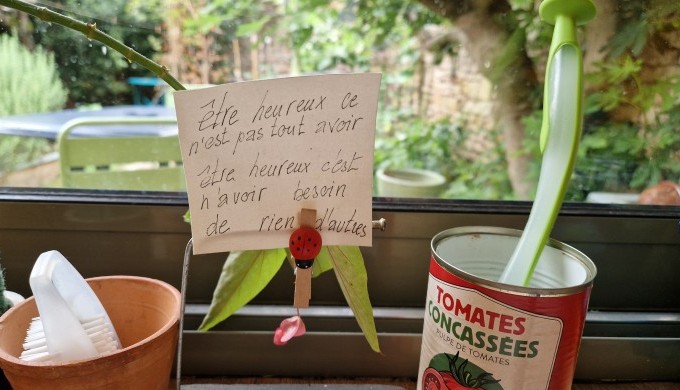 être heureux ce
n'est pas tout avoir
être heureux c'est
n'avoir besoin
de rien d'autres
TOMATES
CONCASSÉES
PULPE DE TOMATES